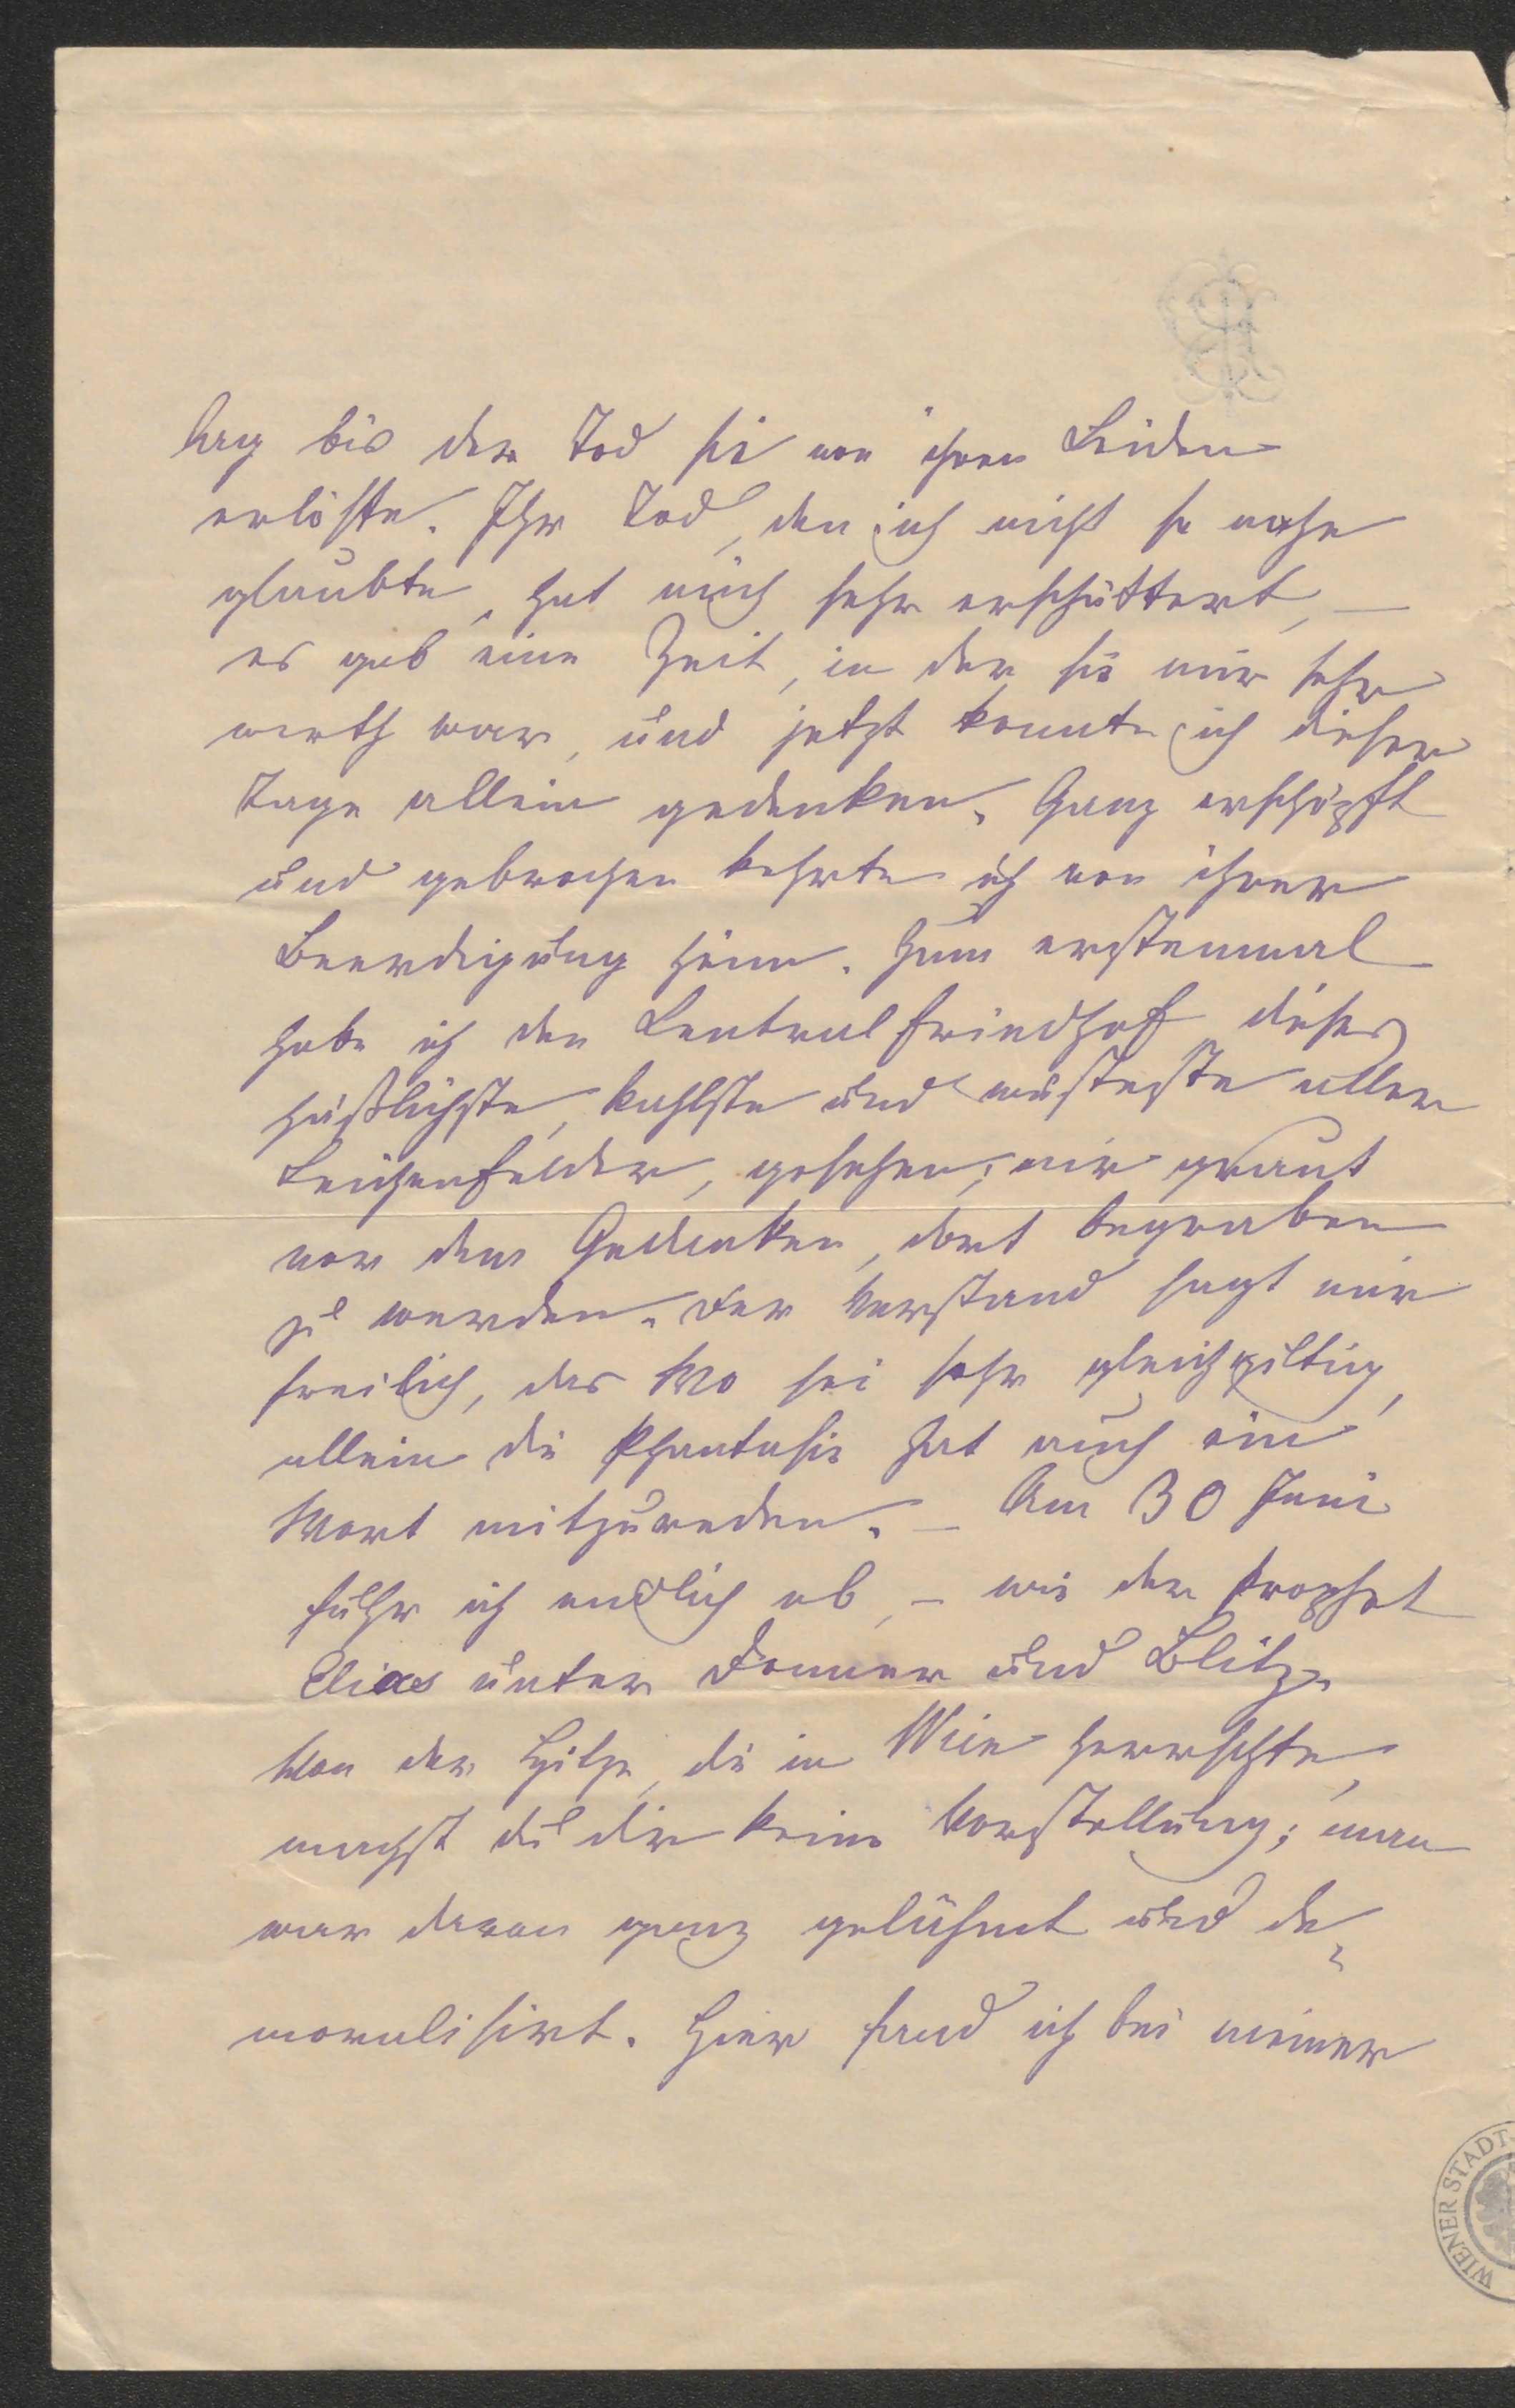 lag bis der Tod sie von ihren Leiden
erlöste. Ihr Tod, den ich nicht so nahe
glaubte, hat mich sehr erschüttert, —
es gab eine Zeit, in der sie mir sehr
werth war, und jetzt konnte ich dieser
Tage allein gedenken. Ganz erschöpft
und gebrochen kehrte ich von ihrer
Beerdigung heim. Zum erstenmal
habe ich den Centralfriedhof, dieses
häßlichste, kahlste und wüsteste aller
Leichenfelder, gesehen; mir graut
vor dem Gedanken, dort begraben
zu werden. Der Verstand sagt mir
freilich, das Wo sei sehr gleichgiltig,
allein die Phantasie hat auch ein
Wort mitzureden. – Am 30 Juni
fuhr ich endlich ab, – wie der Prophet
Elias unter Donner und Blitz.
Von der Hitze, die in Wien herrschte,
machst du dir keine Vorstellung; man
war davon ganz gelähmt und de-
moralisirt. Hier fand ich bei meiner
WIENER STADT